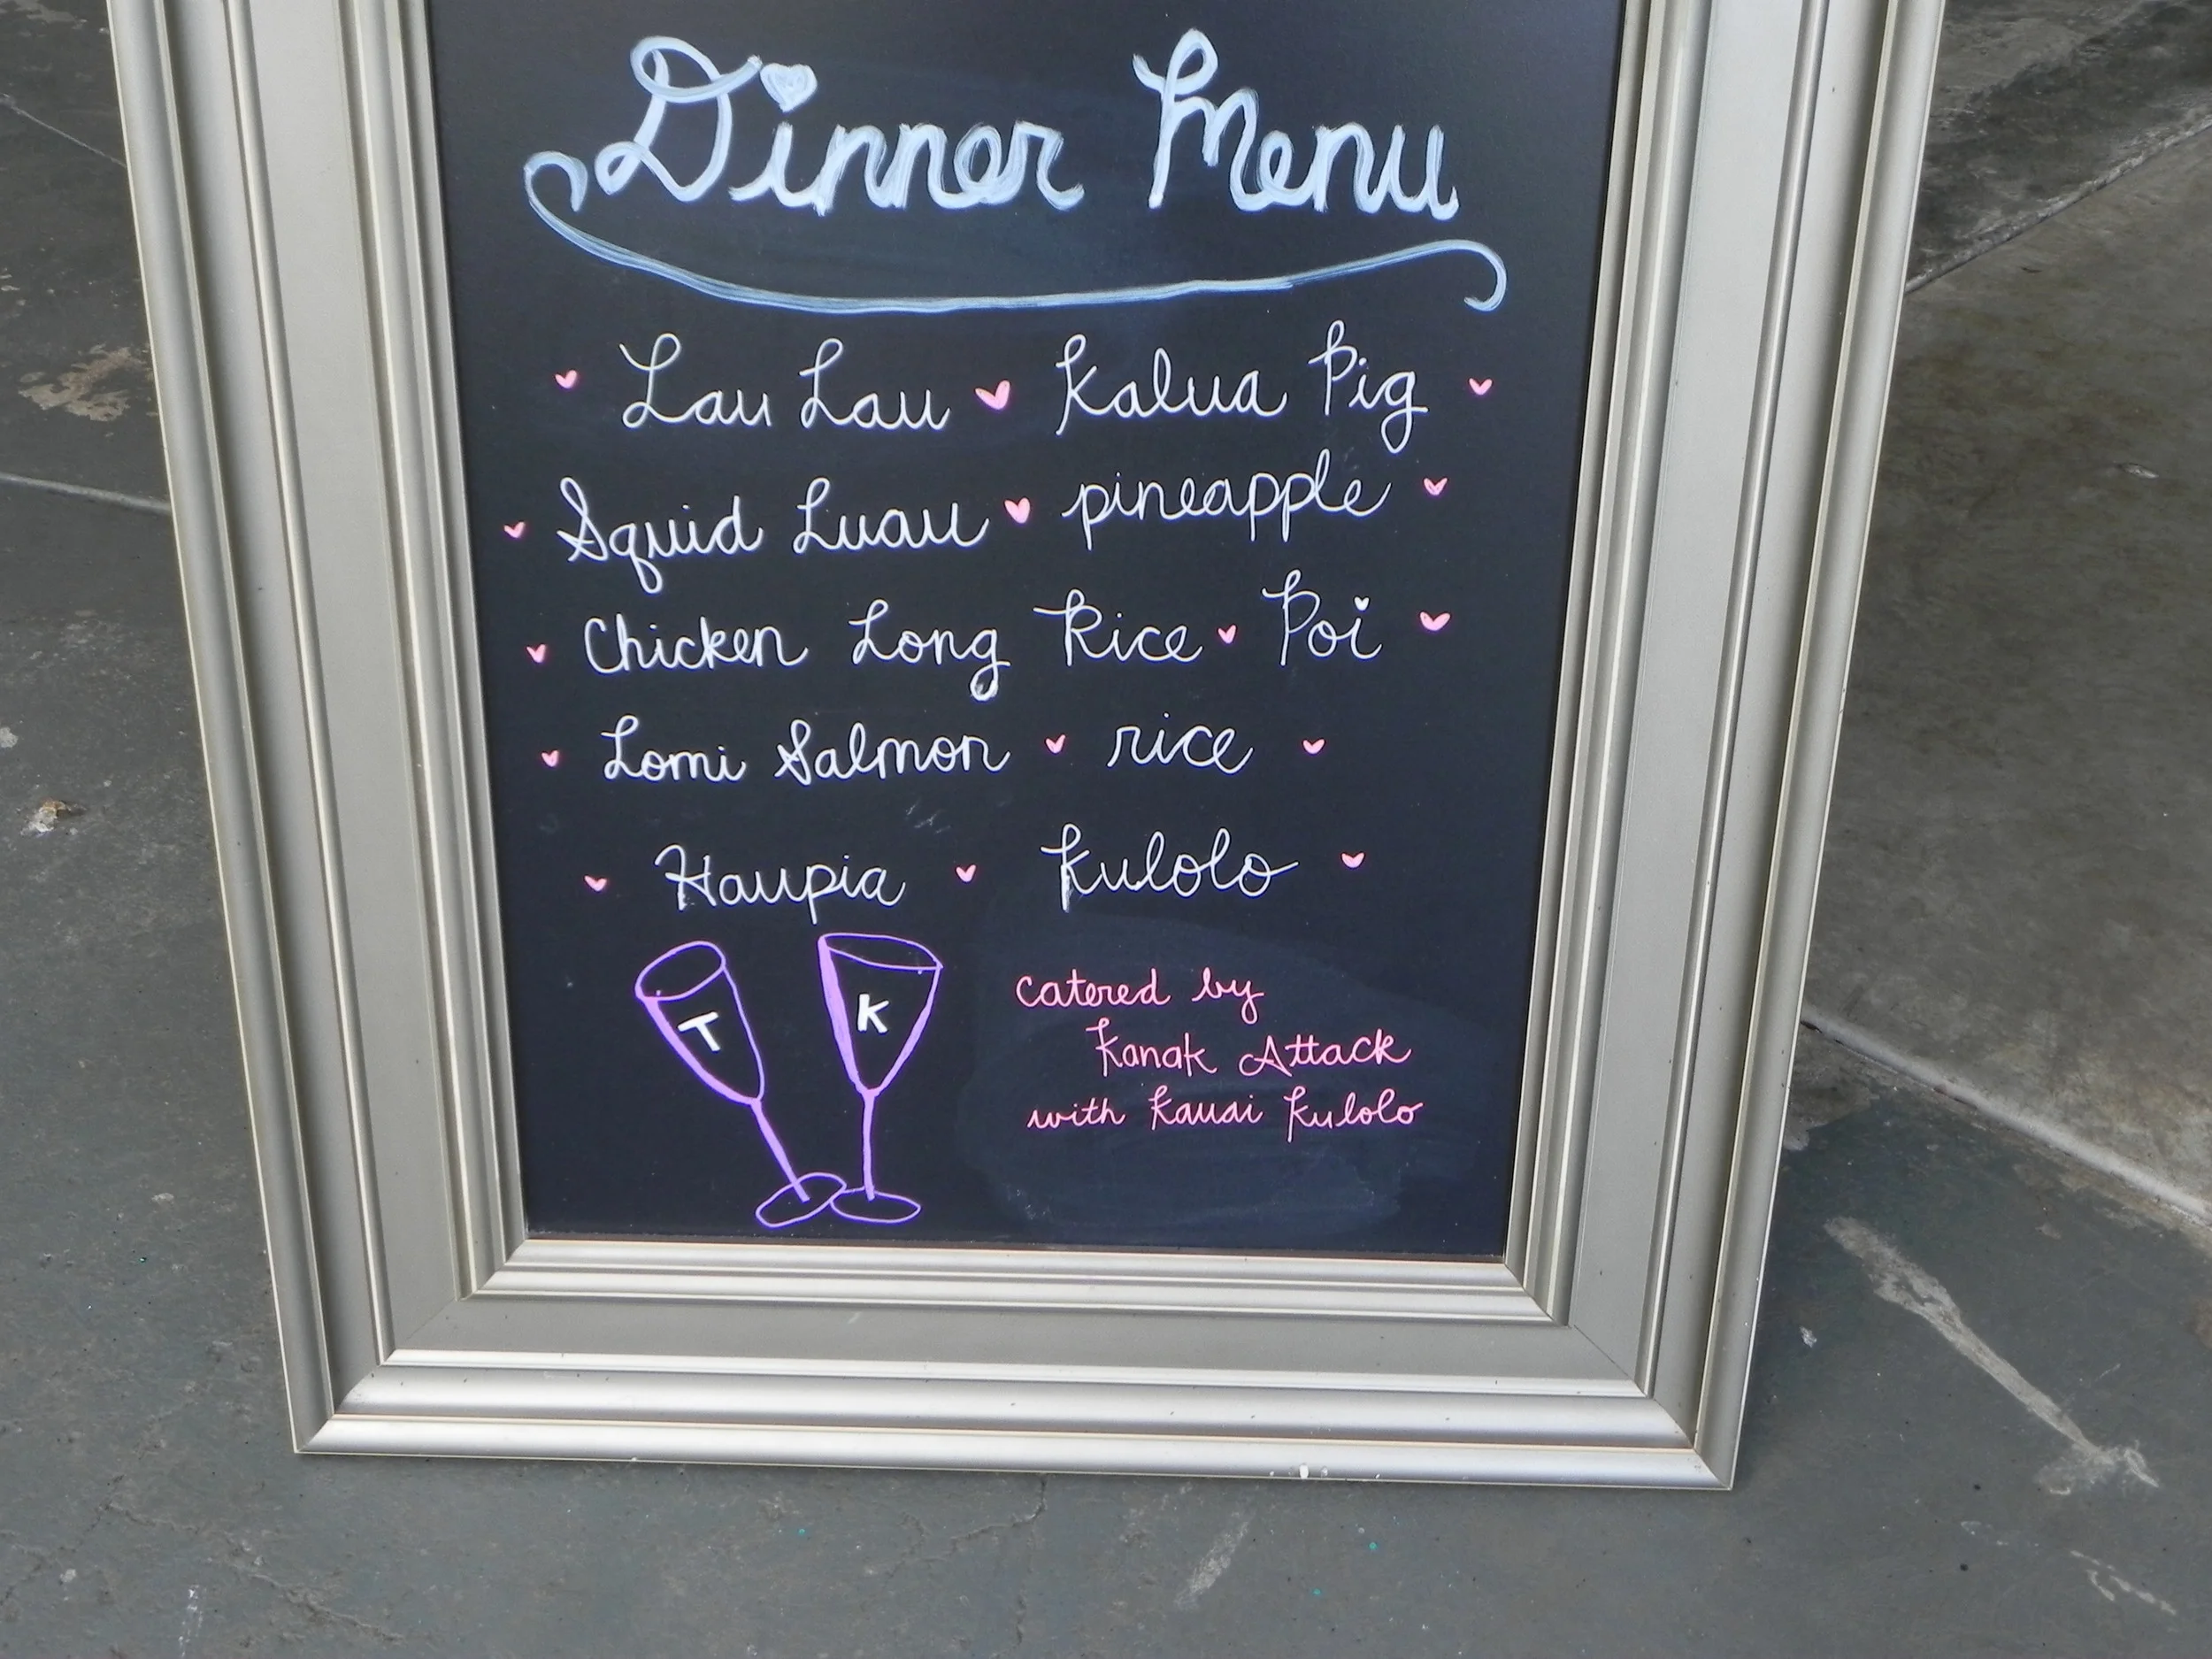 Dinner Menu
Lau Lau Kalua Pig
Squid Luau pineapple
Chicken Long Rice Poi
Lomi Salmon rice
Haupia Kulolo
T K
catered by
Kanak Attack
with Kauai Kulolo